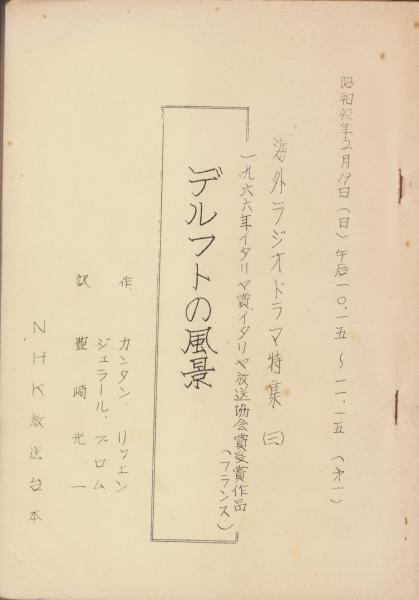 昭和42年2月19日(日)午后一〇.一五～一一.一五(オ一)
海外ラジオドラマ特集(三)
一九六六年イタリヤ賞イタリヤ放送協会賞受賞作品(フランス)
デルフトの風景
作 カンタン.リッエン
ジェラール.フロム
訳 藍崎光一
NHK放送台本